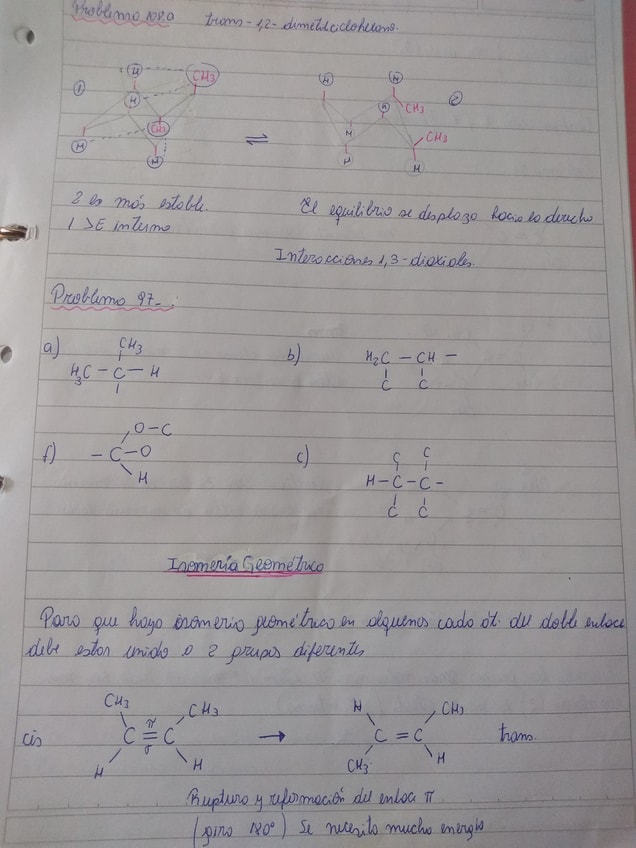 Problema 102.a trans-1,2-dimetilciclohexano.
H CH3 H H
1 H H CH3 2
H CH3 ⇌ H CH3
H H H
2 es más estable. El equilibrio se desplaza hacia la derecha
1 >E interna
Interacciones 1,3-diaxiales.
Problema 97-:
a) CH3 b) H2C - CH -
H3C - C - H C C
f) O-C c) C C
- C - O H - C - C -
H C C
Isomería Geométrica
Para que haya isomería geométrica en alquenos cada át. del doble enlace
debe estar unido a 2 grupos diferentes
CH3 CH3 H CH3
cis C π = σ C → C = C trans.
H H CH3 H
Ruptura y reformación del enlace π
(giro 180°) Se necesita mucha energía